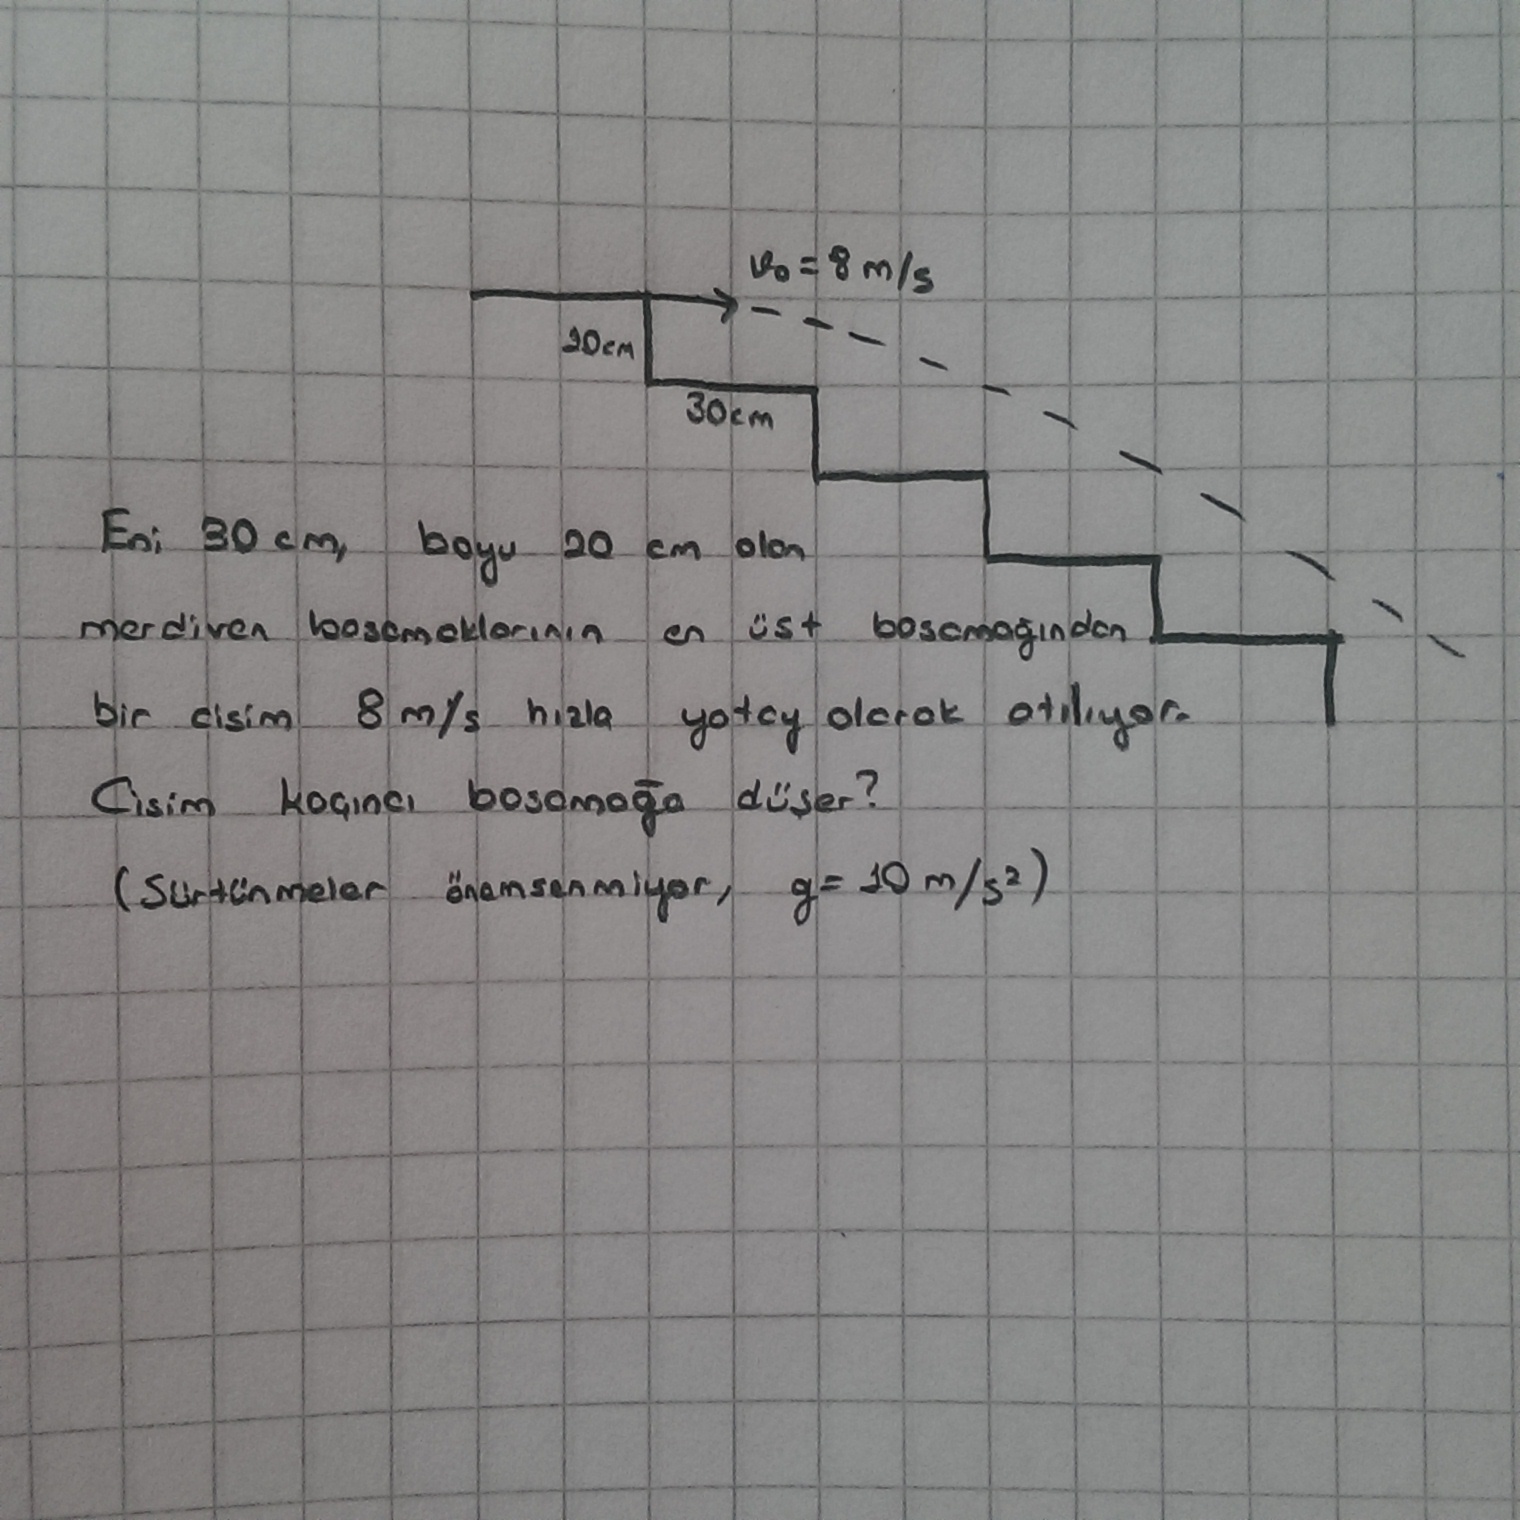 v₀ = 8 m/s
20cm
30cm
Eni 30 cm, boyu 20 cm olan
merdiven basamaklarının en üst basamağından
bir cisim 8 m/s hızla yatay olarak atılıyor.
Cisim kaçıncı basamağa düşer?
(Sürtünmeler önemsenmiyor, g = 10 m/s²)